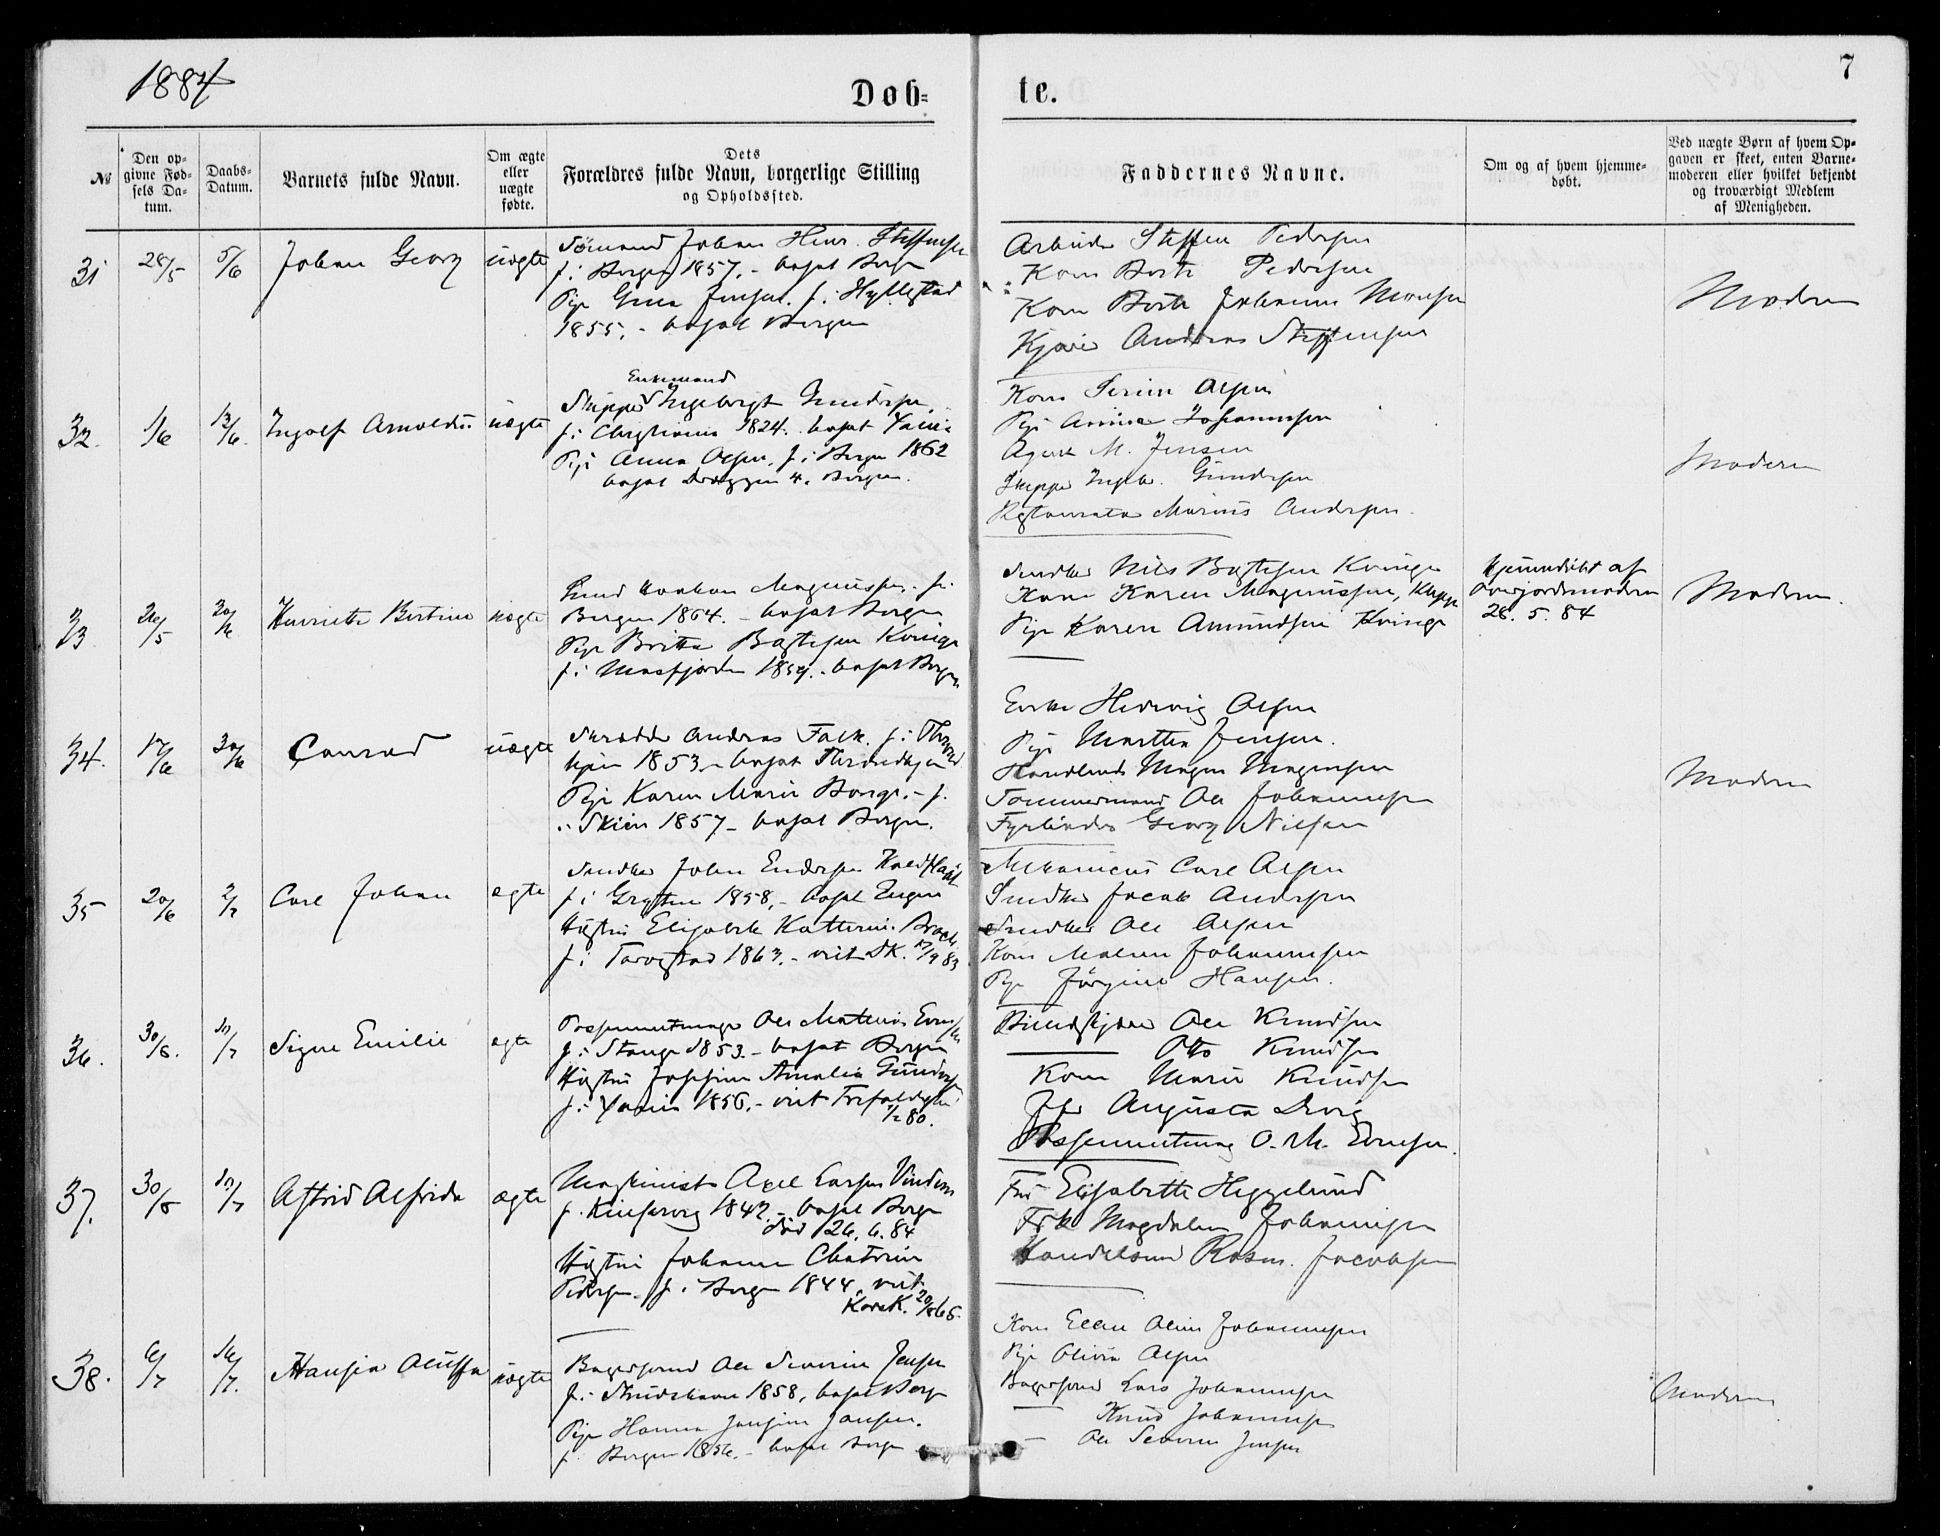 1884
Døb=
te.
7
No
Den op-
givne Fød-
sels Da-
tum.
Daabs-
Datum.
Barnets fulde Navn.
Om ægte
eller
uægte
fødte.
Dets
Forældres fulde Navn, borgerlige Stilling
og Opholdssted.
Faddernes Navne.
Om og af hvem hjemme-
døbt.
Ved uægte Børn af hvem Op-
gaven er skeet, enten Barne-
moderen eller hvilket bekjendt
og troværdigt Medlem
af Menigheden.
31
28/5
5/6
Johan Georg
uægte
Sömand Johan Henr. Steffensen
f. i Bergen 1857. - bosat Bergen
Pige Gina Jensen. f. i Hyllestad
1855. - bosat Bergen
Arbeider Steffen Pedersen
Kone Berte Pedersen
Kone Berte Johanna Monsen
Andreas Steffensen
Moderen
32.
1/6
13/6.
Ingolf Arnoldus
uægte
Enkemand
Skipper Ingebrigt Gundersen
f. i Christiania 1824. bosat
Pige Anna Olsen. f. i Bergen 1862
bosat Dræggen 4. Bergen.
Kone Olsen
Pige Annina Johannesen
Agent M. Jensen
Skipper Ingeb. Gundersen
Restauratør Marius Andersen.
Moderen
33
26/5
20/6
Henriette Bertine
uægte
Haakon Magnussen. f. i
Bergen 1864. - bosat Bergen
Pige Britha Bøgtesen Kvinge
f. i Masfjorden 1854. - bosat Bergen
Smed Nils Bøgtesen Kvinge
Kone Karen Magnussen,
Pige Karen Amundsen Kvinge
hjemmedøbt af
Overjordemoderen
28. 5. 84
Moderen.
34.
17/6
30/6
Conrad
uægte
Skrædder Andreas Falk. f. i Thrond
hjem 1853. - bosat Throndhjem
Pige Karen Marie Bonge. - f.
i Skien 1857 - bosat Bergen.
Enke Hedevig Olsen
Pige Martha Jensen.
Handlende Magne Magnesen
Tømmermand Ole Johannesen
Fyrbøder Georg Nilsen
Moderen
35
20/6
2/7
Carl Johan
ægte
Snedker Johan Endresen
f. i Grytten 1858, - bosat Engen
Hustru Elisabeth Kathrine
f. i 1863. - viet DK. 17/9 83
Mekanicus Carl Olsen
Snedker Jacob Andersen
Snedker Ole Olsen
Kone Malene Johannesen
Pige Jörgine Hansen.
36.
30/6.
11/7
Signe Emilie
ægte
Possementmager Ole Mathias Evensen
f. i Stange 1853. - bosat Bergen
Hustru Josephine Amalia Gundersen
f. i 1856. - viet
1/2 80.
Ole Knudsen
Otto Knudsen
Kone Marie Knudsen
Augusta
Possementmag O. M. Evensen.
37.
30/5
11/7
Astrid Alfrida
ægte
Maskinist Axel Larsen
f. Kinservig 1842. - bosat Bergen
død 26. 6. 84
Hustru Johanne Chatrine
Pedersen f. i Bergen 1844, viet
KorsK. 20/8 65.
Fru Elisabeth Heggelund
Frk Magdalene Johannesen
Handelsmand Rasm. Jacobsen
38.
6/7
16/7.
Hansia Olufsa
uægte
Bagersvend Ole Severin Jensen
f. i Skudeshavn 1858, bosat Bergen
Pige Hanna Jansine Jansen.
f. i Bergen 1856. - bosat Bergen
Kone Ellen Oline Johannesen
Pige Olivia Olsen
Bagersvend Lars Johannesen
Knud Johannesen
Ole Severin Jensen
Moderen